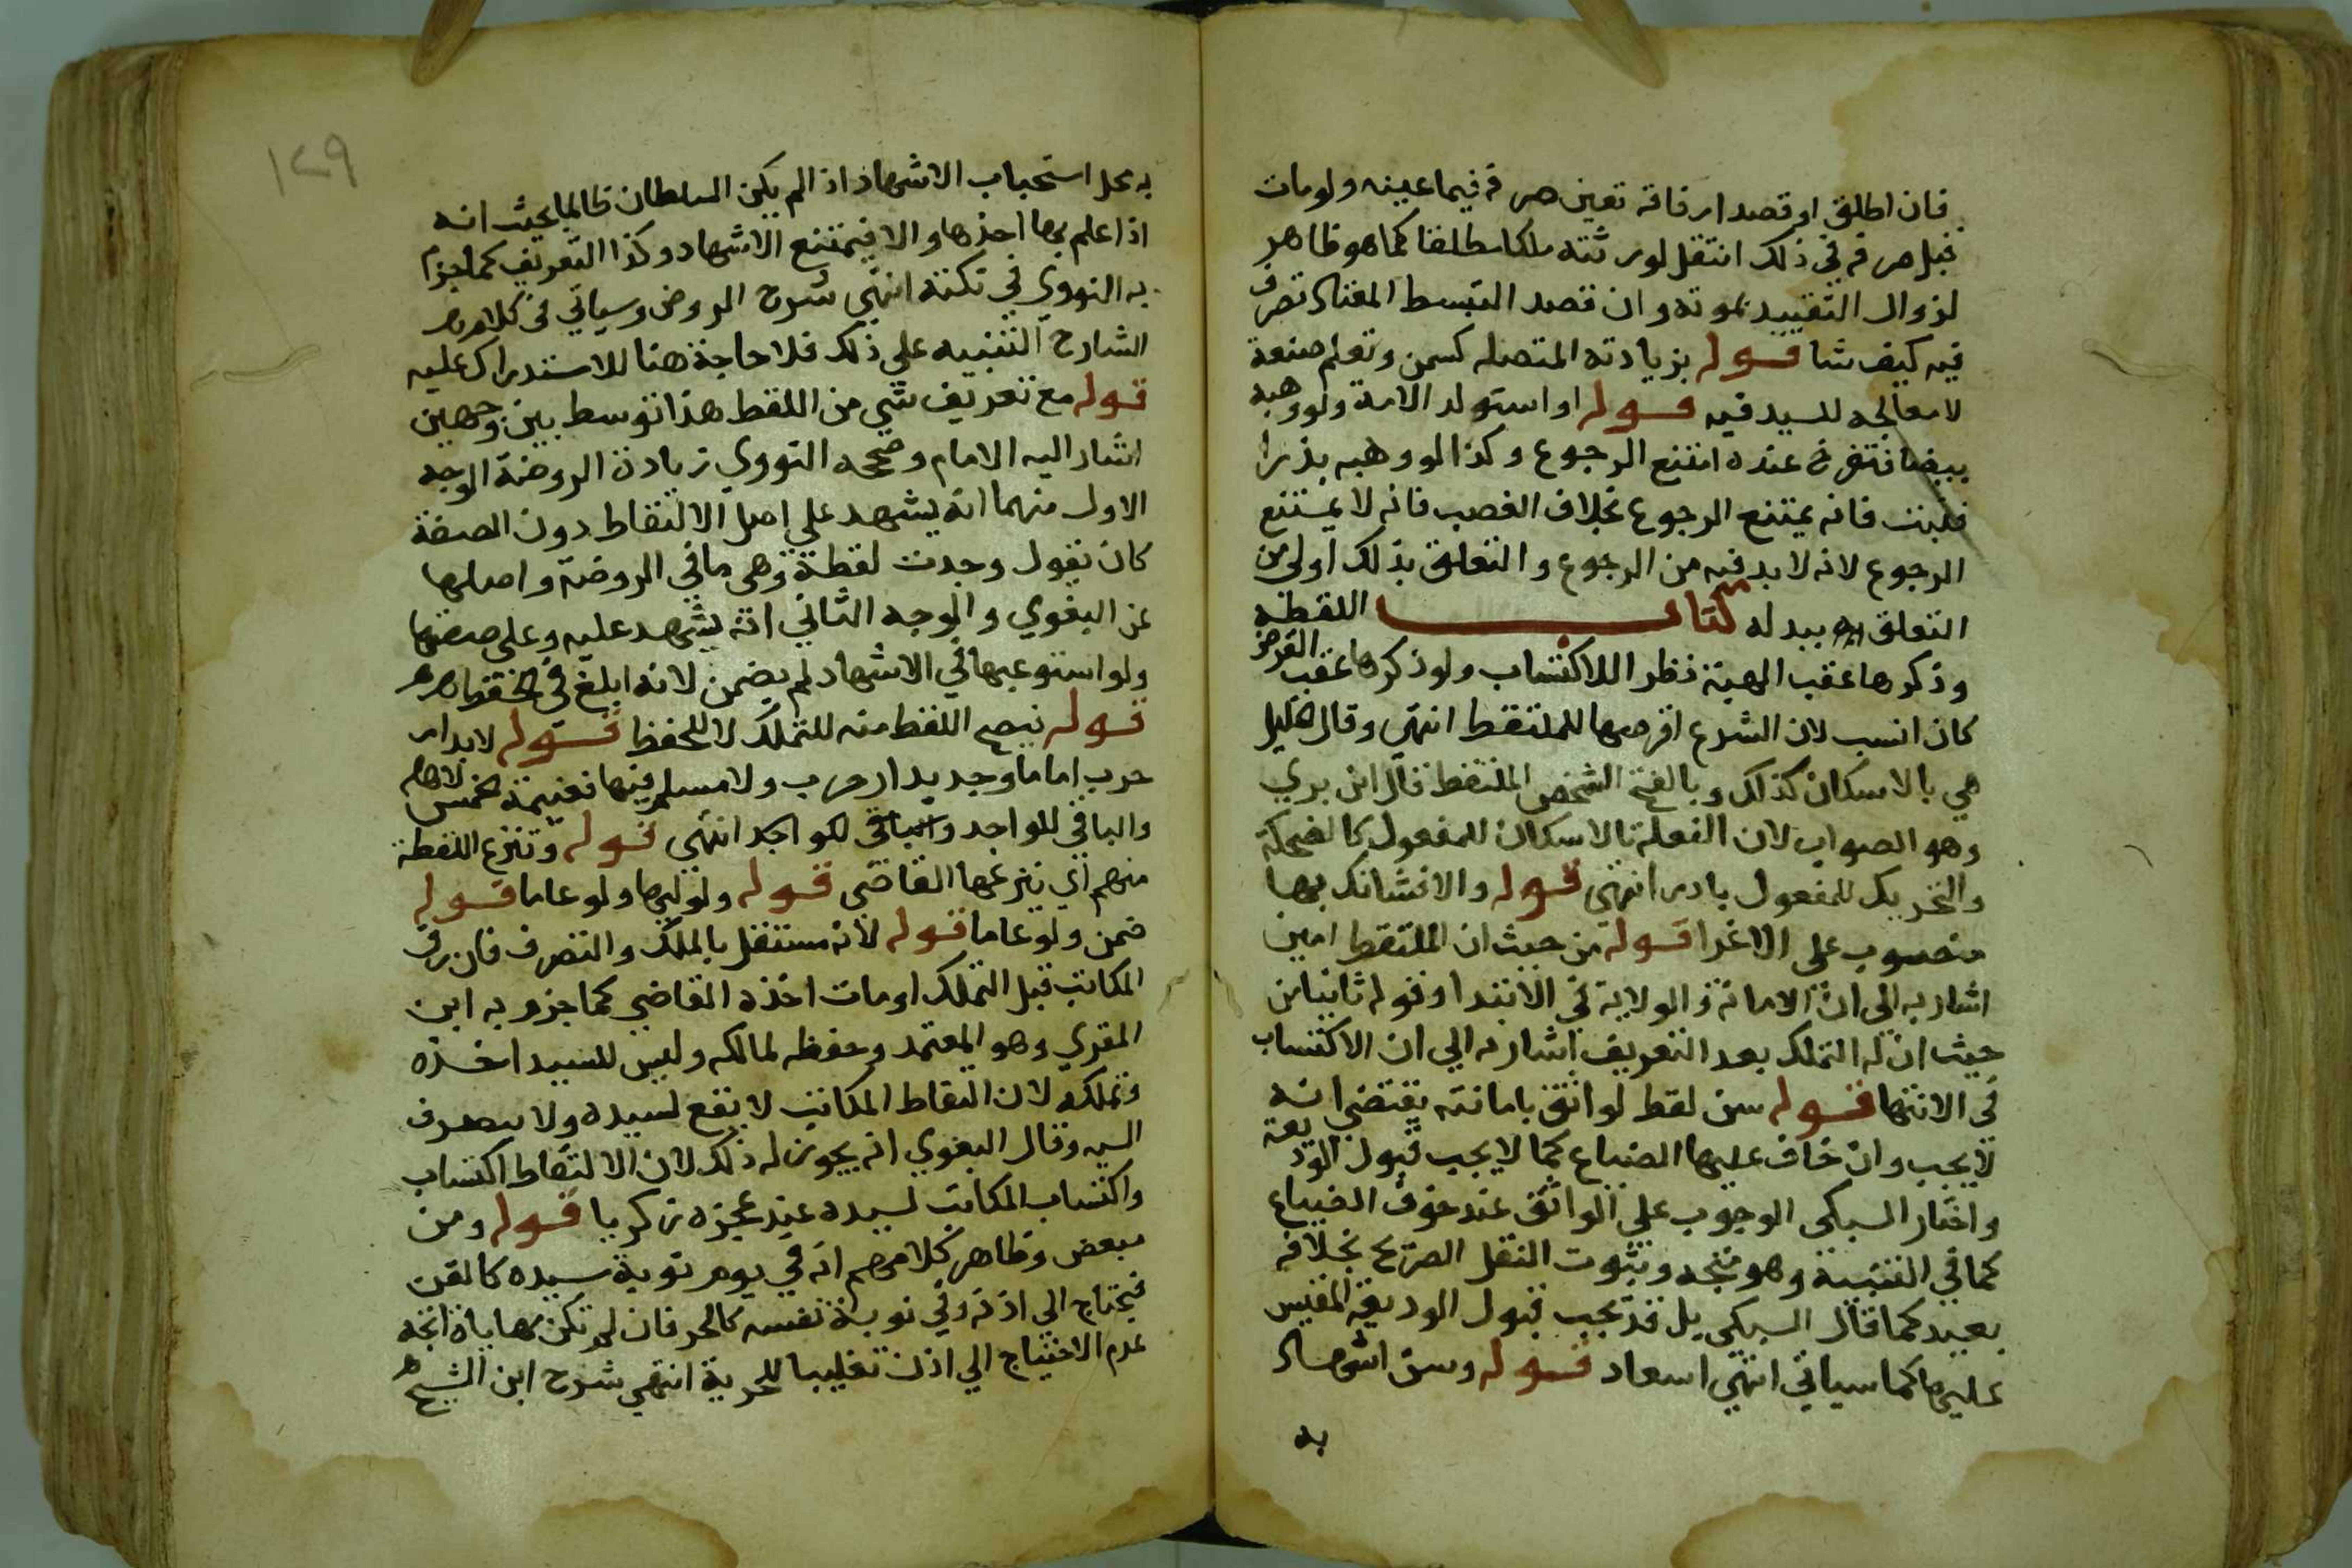 فان اطلق او قصد ارفاقه تعين صرفه فيما عينه ولو مات
قبل صرفه في ذلك انتقل لورثته ملكا مطلقا كما هو ظاهر
لزوال التقييد بموته وان قصد التبسط المعتاد تصرف
فيه كيف شا قوله بزيادته المتصله كسمن وتعلم صنعة
لا معالجه للسيد فيه قوله او استولد الامة ولو وهبه
بيضا فتفرخ عنده امتنع الرجوع وكذا لو وهبه بذرا
فنبت فانه يمتنع الرجوع بخلاف الغصب فانه لا يمتنع
الرجوع لانه لا بد فيه من الرجوع والتعلق بذلك اولى من
التعلق ببدله كتاب اللقطه
وذكرها عقب الهبة نظرا للاكتساب ولو ذكرها عقب القرض
كان انسب لان الشرع اقرضها للملتقط انتهى وقال الخليل
هي بالاسكان كذلك وبالفتح الشخص الملتقط قال ابن بري
وهو الصواب لان الفعلة بالاسكان للمفعول كالضحكة
والتحريك للمفعول بادر انتهى قوله والا فشانك بها
منصوب على الاغرا قوله من حيث ان الملتقط امين
اشار به الى ان الامانة والولاية في الابتدا وقوله ثانيا من
حيث ان له التملك بعد التعريف اشار به الي ان الاكتساب
في الانتها قوله سن لقط لواثق بامانته يقتضي انه
لا يجب وان خاف عليها الضياع كما لا يجب قبول الوديعة
واختار السبكي الوجوب على الواثق عند خوف الضياع
كما في الغنيبة وهو متجه وثبوت النقل الصريح بخلافه
بعيد كما قال السبكي بل قد يجب قبول الوديعة المقيس
عليها كما سياتي انتهى اسعاد قوله وسن اشهاد
به
١٢٩
به محل استحباب الاشهاد اذا لم يكن السلطان ظالما بحيث انه
اذا علم بها اخذها والا فيمتنع الاشهاد وكذا التعريف كما جزم
به النووي في نكته انتهى شرح الروض وسياتي في كلام
الشارح التنبيه على ذلك فلا حاجة هنا للاستدراك عليه
قوله مع تعريف شي من اللقط هذا توسط بين وجهين
اشار اليه الامام وصححه النووي زيادة الروضة الوجه
الاول منهما انه يشهد على اصل الالتقاط دون الصفة
كان يقول وجدت لقطة وهي ما في الروضة واصلها
عن البغوي والوجه الثاني انه يشهد عليه وعلى صفتها
ولو استوعبها في الاشهاد لم يضمن لانه ابلغ في
قوله نيصح اللقط منه للتملك لا للحفظ قوله لا بدار
حرب اما ما وجد بدار حرب ولا مسلم فيها فغنيمة خمس لاهله
والباقي للواجد والباقي لكو اجد انتهى قوله وتنزع اللقطة
منهم اي ينزعها القاضي قوله ولو ليها ولو عاما قوله
ضمن ولو عاما قوله لانه مستقل بالملك والتصرف فان رق
المكاتب قبل التملك او مات اخذه القاضي كما جزم به ابن
المقري وهو المعتمد وحفظه لمالكه وليس للسيد اخذه
وتملكه لان التقاط المكاتب لا يقع لسيده ولا يصرف
اليه وقال البغوي انه يجوز له ذلك لان الالتقاط اكتساب
واكتساب المكاتب لسيده عند عجزه زكريا قوله ومن
مبعض وظاهر كلامهم انه في يوم نوبة سيده كالقن
فيحتاج الي اذنه وفي نوبة نفسه كالحر فان لم تكن مهاياة اتجه
عدم الاحتياج الي اذن تغليبا للحرية انتهى شرح ابن الشيخ